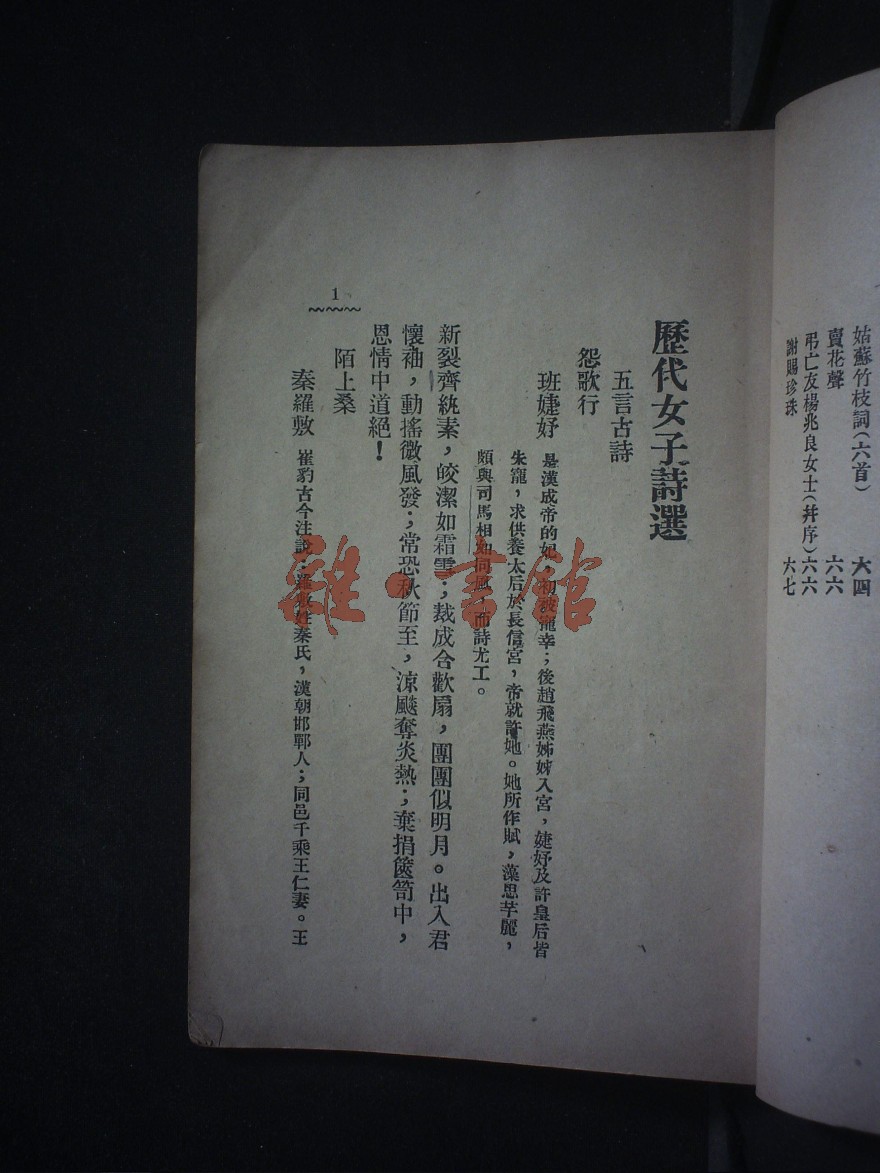 姑蘇竹枝詞(六首) 六四
賣花聲 六六
弔亡友楊兆良女士(幷序) 六六
謝賜珍珠 六七
歷代女子詩選
五言古詩
怨歌行
班婕妤 是漢成帝的妃,初被寵幸;後趙飛燕姊妹入宮,婕妤及許皇后皆
朱寵,求供養太后於長信宮,帝就許她。她所作賦,藻思芊麗,
頗與司馬相如同風,而詩尤工。
新裂齊紈素,皎潔如霜雪;裁成合歡扇,團團似明月。出入君
懷袖,動搖微風發;常恐秋節至,涼飈奪炎熱;棄捐篋笥中,
恩情中道絕!
陌上桑
秦羅敷 崔豹古今注說:羅敷姓秦氏,漢朝邯鄲人;同邑千乘王仁妻。王
1
雜·書館